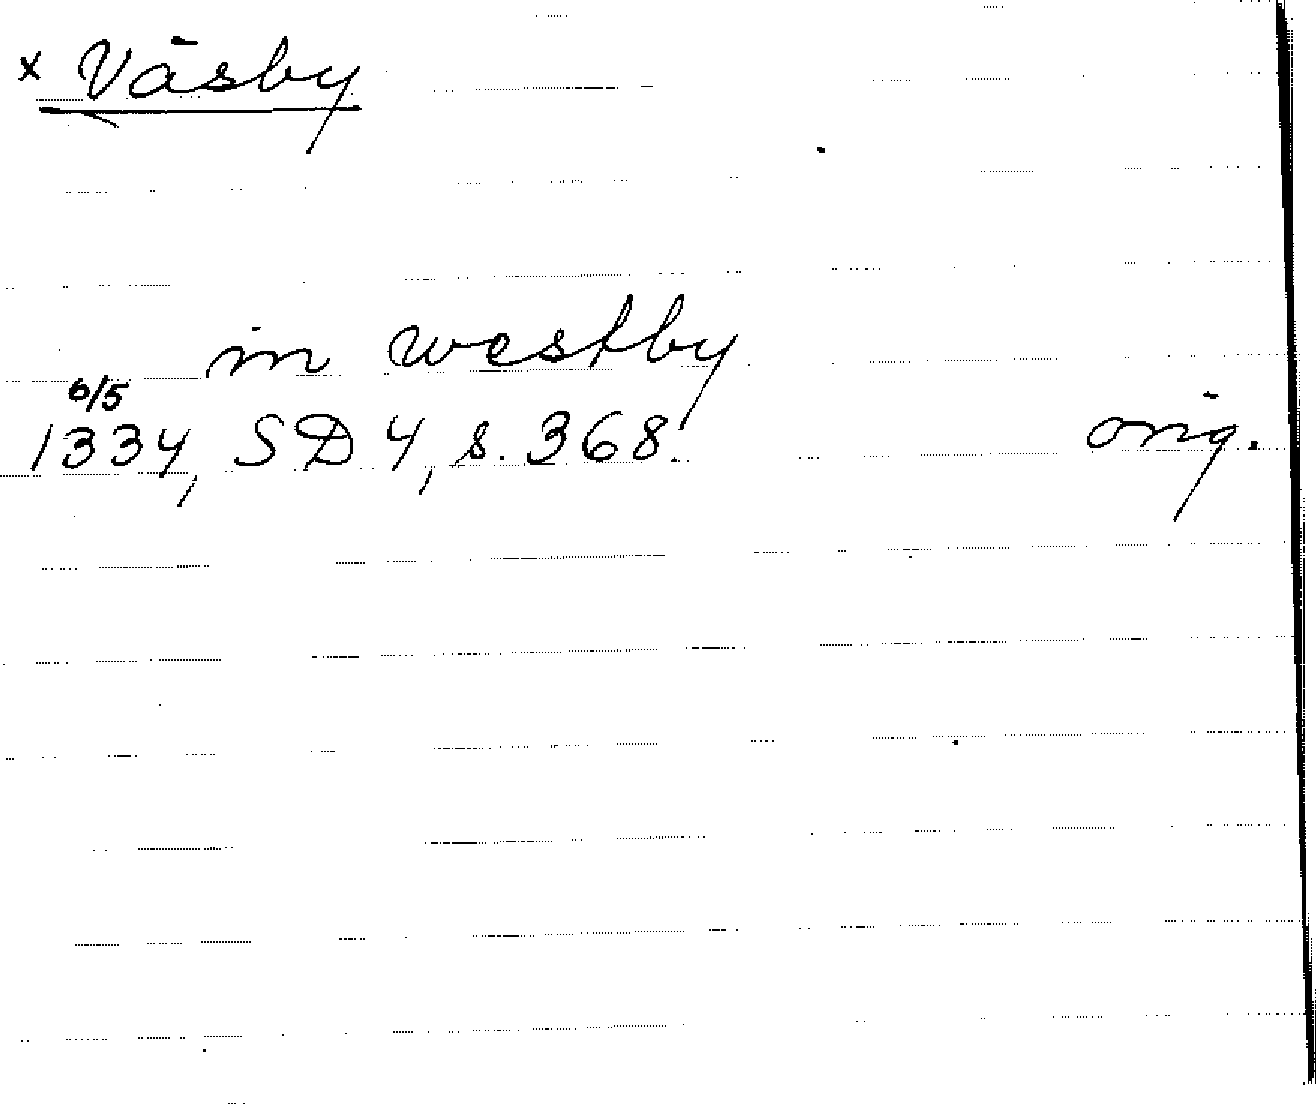 x Väsby
in westby
6/5
1334, SD 4, s. 368. orig.